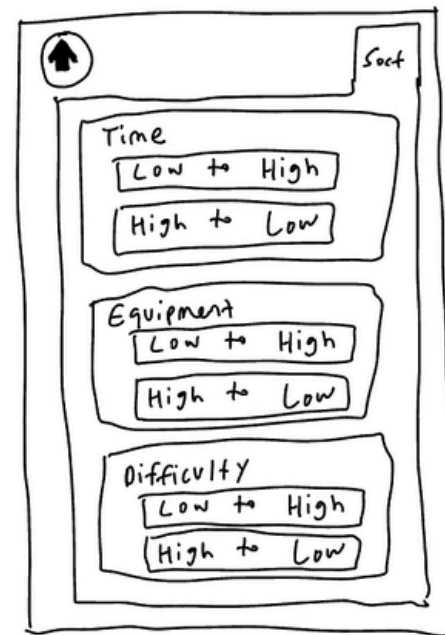 Sort
Time
Low to High
High to Low
Equipment
Low to High
High to Low
Difficulty
Low to High
High to Low